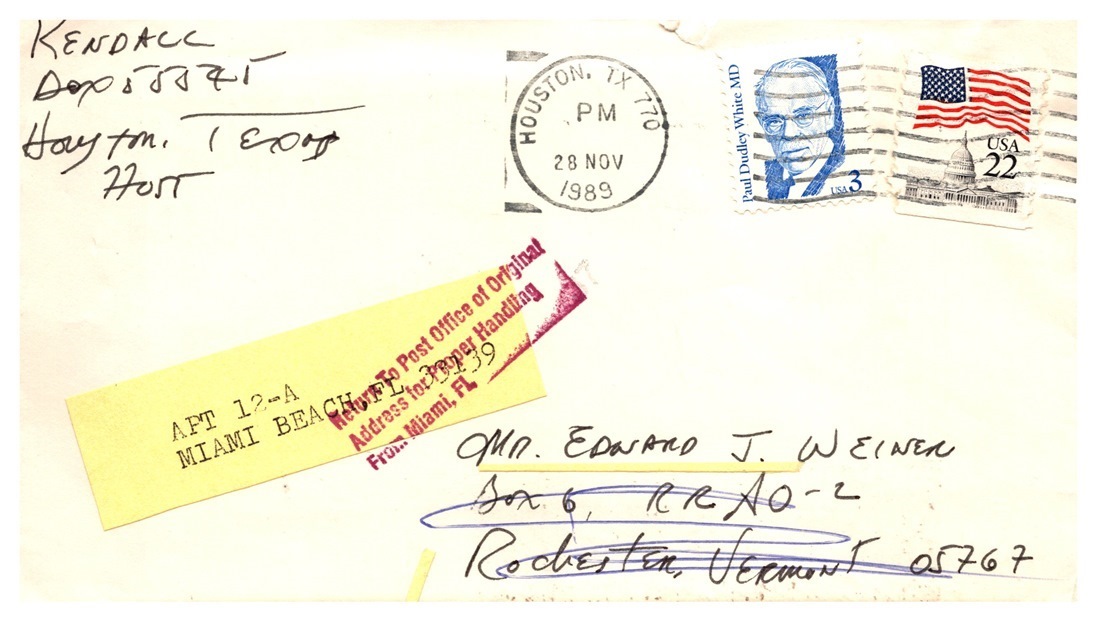 KENDALL
Box
Houston, Texas
HOUSTON, TX 770
PM
28 NOV
1989
Paul Dudley White MD
USA 3
USA
22
Return To Post Office of Original
Address for Proper Handling
From Miami, FL
APT 12-A
MIAMI BEACH, FL 33139
Mr. EDWARD J. WEINER
Box 6, RR
Rochester, Vermont 05767